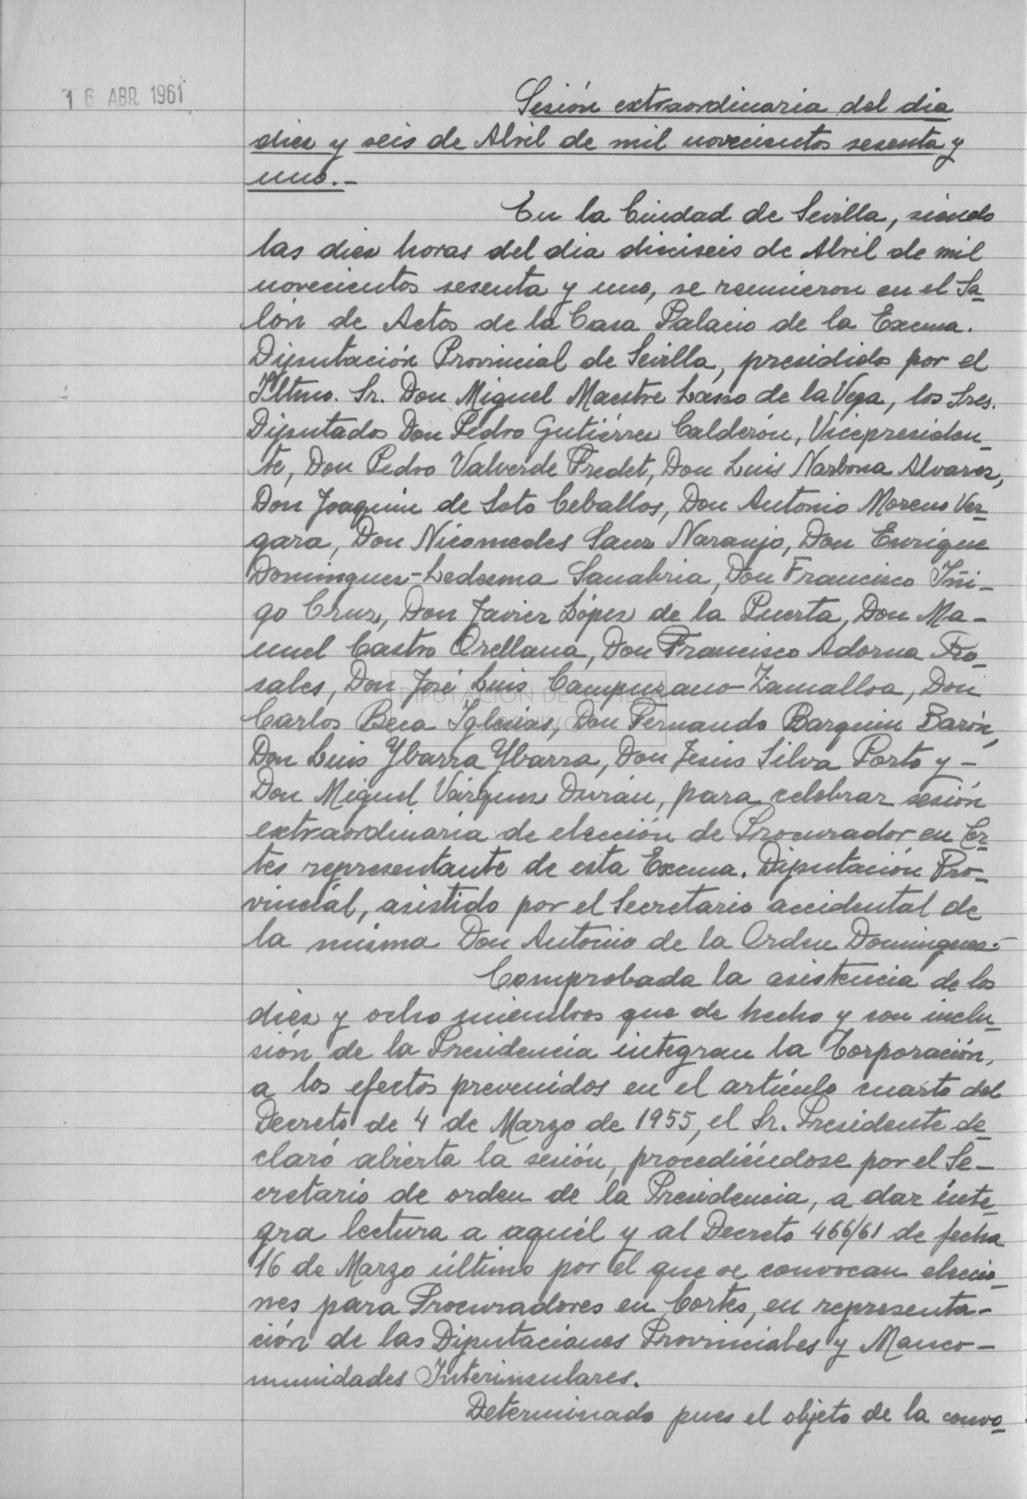 16 ABR 1961
Sesión extraordinaria del dia
diez y seis de Abril de mil novecientos sesenta y
uno.-
En la Ciudad de Sevilla, siendo
las diez horas del dia dieciseis de Abril de mil
novecientos sesenta y uno, se reunieron en el Sa-
lón de Actos de la Casa Palacio de la Excma.
Diputación Provincial de Sevilla, presididos por el
Iltmo. Sr. Don Miguel Maestre Lasso de la Vega, los Sres.
Diputados Don Pedro Gutiérrez Calderón, Vicepresiden-
te, Don Pedro Valverde Fredet, Don Luis Narbona Alvarez,
Don Joaquin de Soto Ceballos, Don Antonio Moreno Ver-
gara, Don Nicomedes Sanz Naranjo, Don Enrique
Dominguez-Ledesma Sanabria, Don Francisco Iñi-
go Cruz, Don Javier López de la Puerta, Don Ma-
nuel Castro Orellana, Don Francisco Adorna Ro-
sales, Don José Luis Campuzano Zamalloa, Don
Carlos Beca Iglesias, Don Fernando Barquin Barón,
Don Luis Ybarra Ybarra, Don Jesús Silva Porto y -
Don Miguel Vázquez Durán, para celebrar sesión
extraordinaria de elección de Procurador en Cor-
tes representante de esta Excma. Diputación Pro-
vincial, asistido por el Secretario accidental de
la misma Don Antonio de la Orden Dominguez.-
Comprobada la asistencia de los
diez y ocho miembros que de hecho y con inclu-
sión de la Presidencia integran la Corporación,
a los efectos prevenidos en el artículo cuarto del
Decreto de 4 de Marzo de 1955, el Sr. Presidente de-
claró abierta la sesión, procediéndose por el Se-
cretario de orden de la Presidencia, a dar ínte-
gra lectura a aquél y al Decreto 466/61 de fecha
16 de Marzo último por el que se convocan eleccio-
nes para Procuradores en Cortes, en representa-
ción de las Diputaciones Provinciales y Manco-
munidades Interinsulares.
Determinado pues el objeto de la convo-